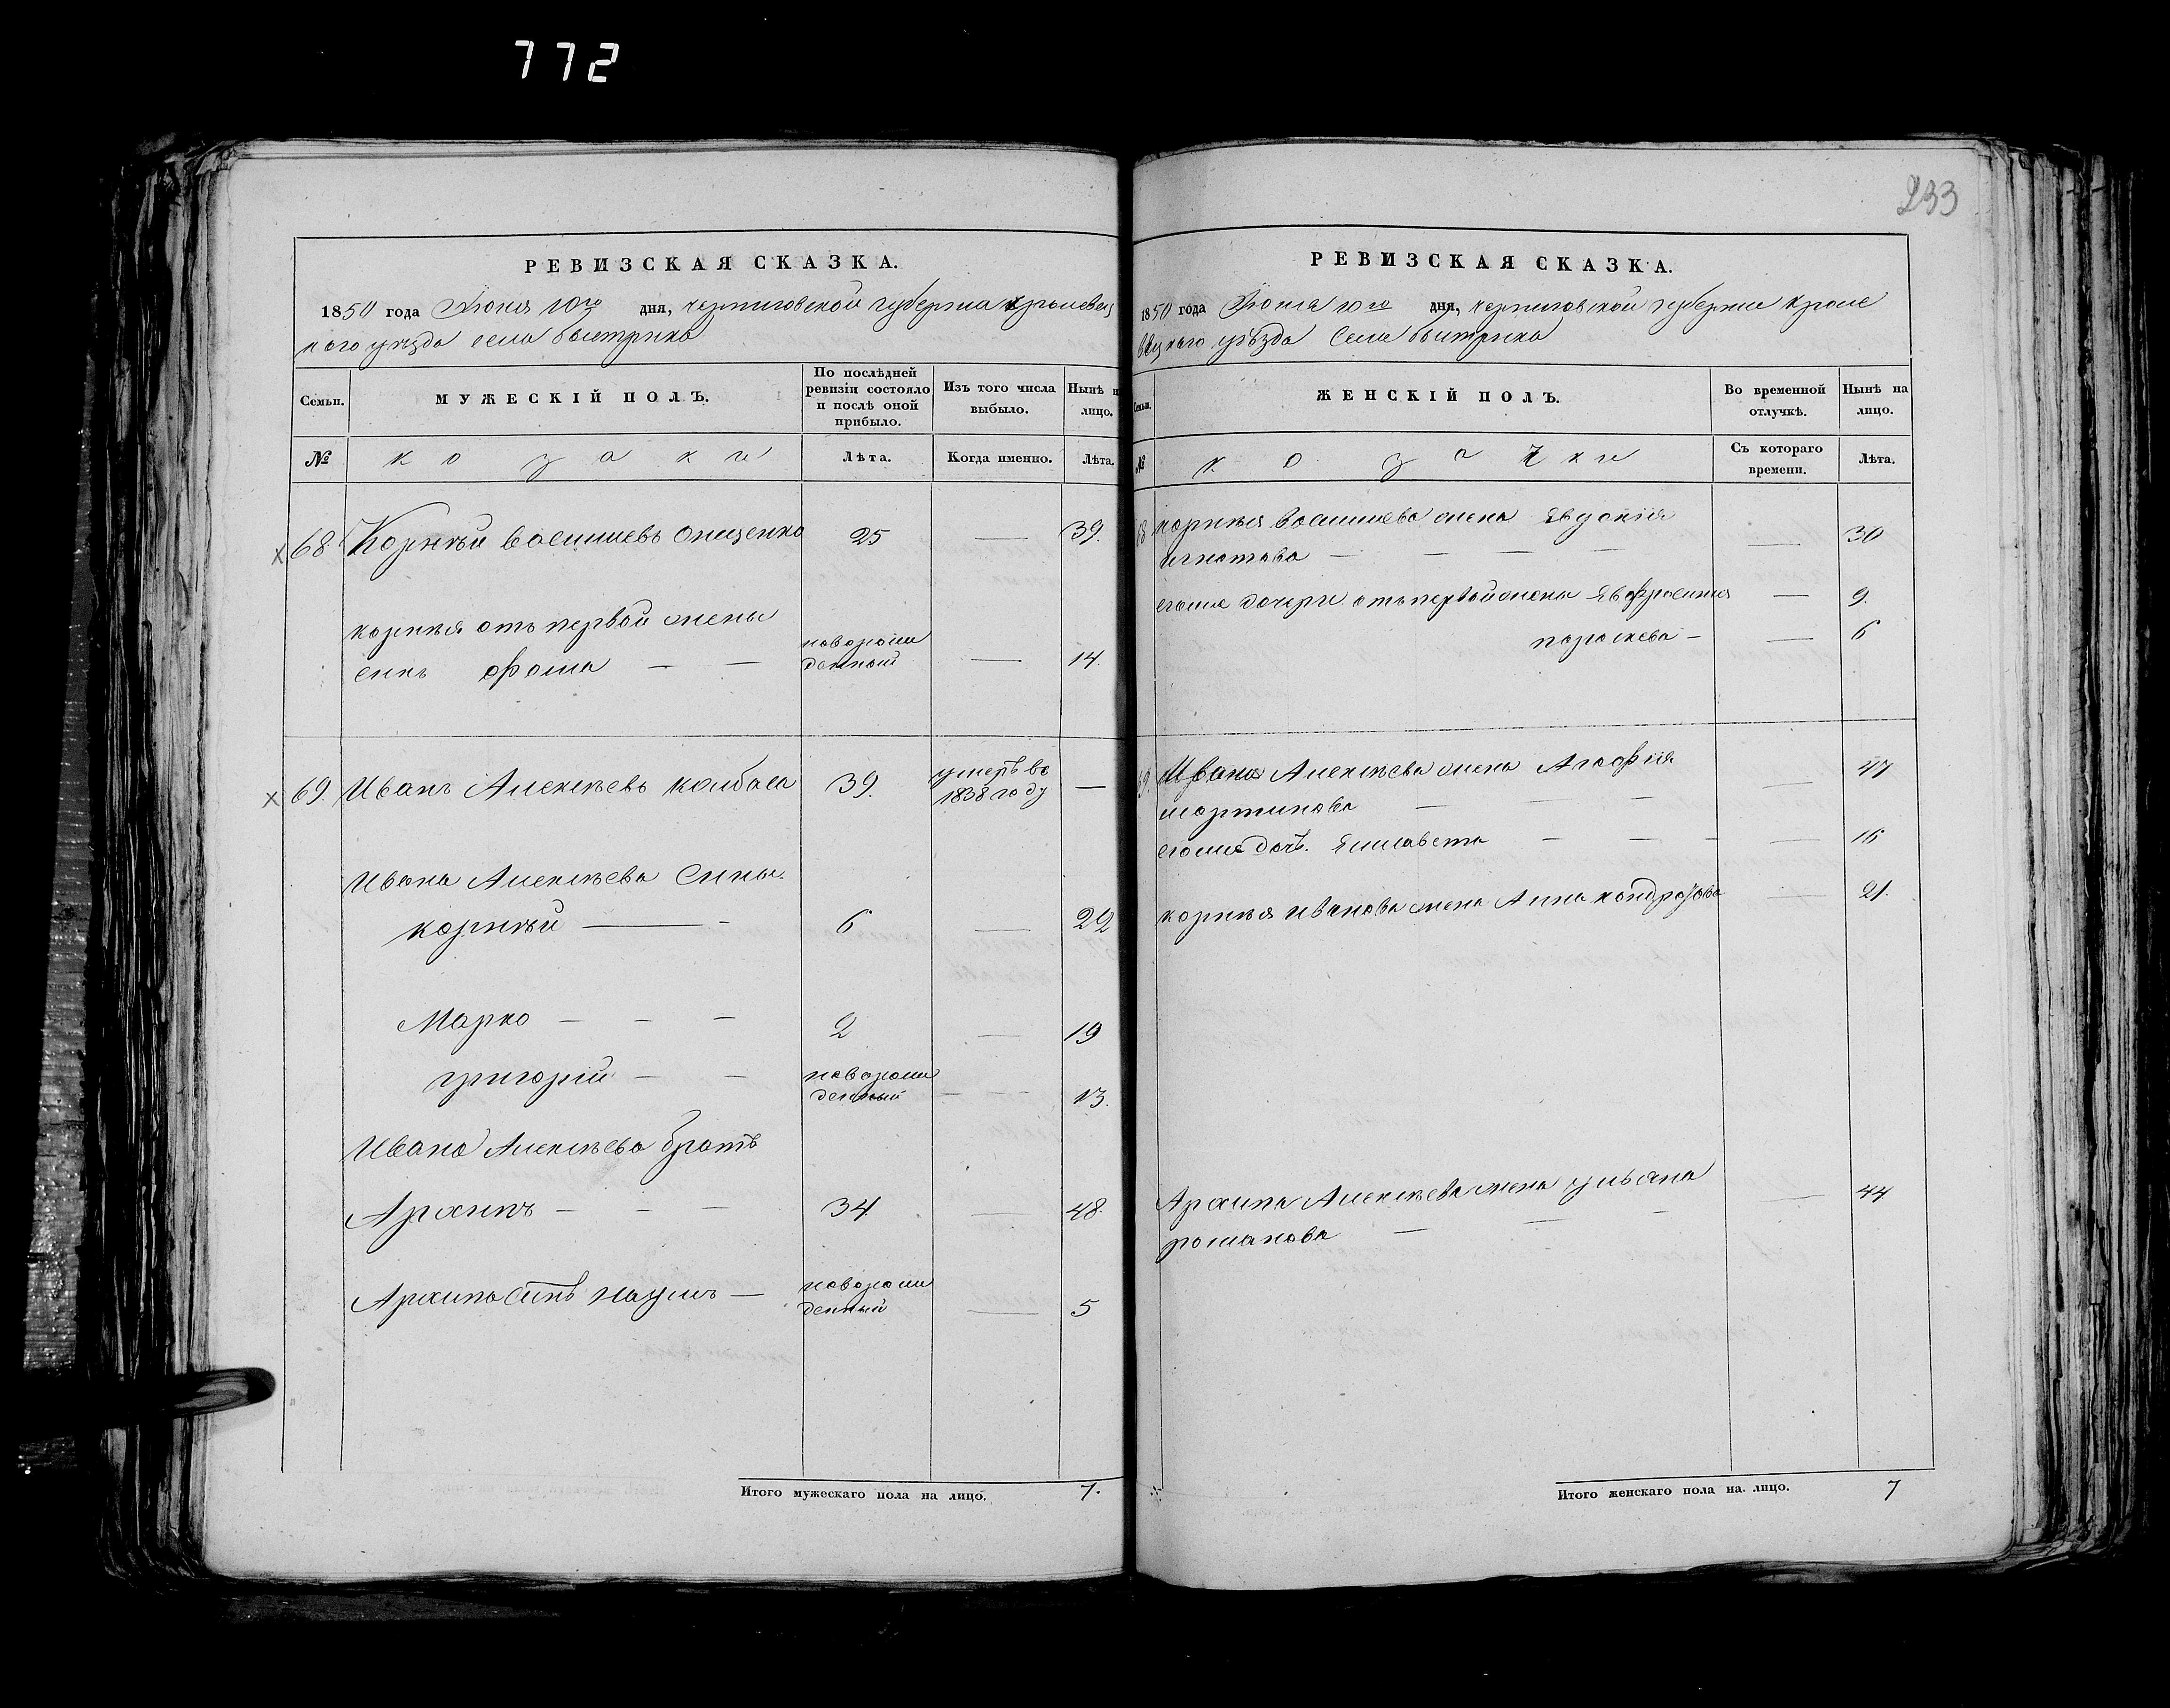 772
233
РЕВИЗСКАЯ СКАЗКА.
1850 года Июня 10го дня, черниговской губернии кролевец
кого уѣзда села быстрика
Семьи.
МУЖЕСКІЙ ПОЛЪ.
По послѣдней ревизіи состояло и послѣ оной прибыло.
Изъ того числа выбыло.
Нынѣ на лицо.
№
козаки
Лѣта.
Когда именно.
Лѣта.
68 Корнѣй Васильевъ Онищенко 25 — 39.
корнѣя отъ первой жены
синъ фома — — новорож
денный — 14.
69. Иванъ Алексѣевъ колбаса 39. умеръ въ
1838 году —
Ивана Алексѣева Сины
корнѣй — 6 — 22
Марко — — — 2 — 19
григорій — — новорож
денный — 13.
Ивана Алексѣева братъ
Архипъ — — — 34 — 48.
Архипа синъ наумъ — новорож
денный — 5
Итого мужескаго пола на лицо. 7.
РЕВИЗСКАЯ СКАЗКА.
1850 года Июня 10го дня, черниговской губернии кроле
вецкаго уѣзда Села быстрика
Семьи.
ЖЕНСКІЙ ПОЛЪ.
Во временной отлучкѣ.
Нынѣ на лицо.
№
козачки
Съ котораго времени.
Лѣта.
корнѣя Васильева жена Явдокія
игнатова — — — — — 30
егоже дочери отъ первой жены Явфросинія — 9.
параскева — — 6
Ивана Алексѣева жена Агафія — 47
мартинова — — —
егоже дочь. Елисавета — — — — 16
корнѣя иванова жена Анна кондратова — 21.
Архипа Алексѣева жена ульяна — 44
романова — — —
Итого женскаго пола на лицо. 7